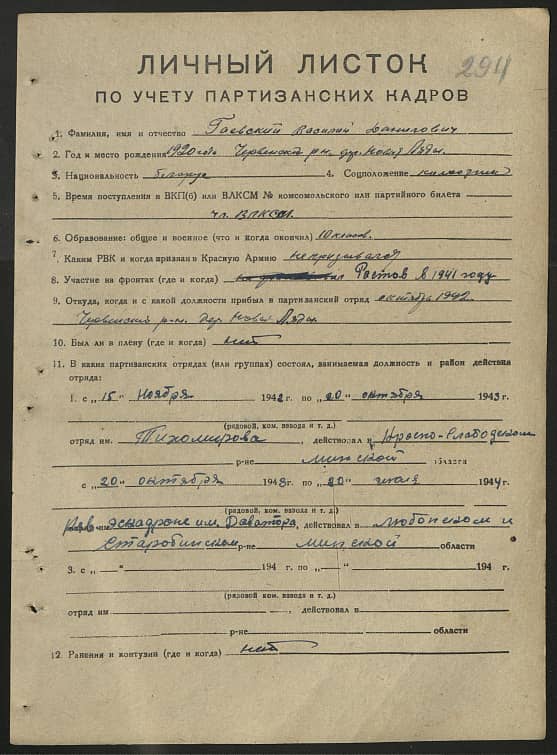 294
ЛИЧНЫЙ ЛИСТОК
ПО УЧЕТУ ПАРТИЗАНСКИХ КАДРОВ
1. Фамилия, имя и отчество Гаевский Василий Данилович
2. Год и место рождения 1920 Червенский р-н. дер. Новые Ляды.
3. Национальность белорус 4. Соцположение
5. Время поступления в ВКП(б) или ВЛКСМ № комсомольского или партийного билета
чл. ВЛКСМ.
6. Образование: общее и военное (что и когда окончил) 10 классов.
7. Каким РВК и когда призван в Красную Армию не призывался
8. Участие на фронтах (где и когда) Ростов в 1941 году
9. Откуда, когда и с какой должности прибыл в партизанский отряд октябрь 1942.
Червенский р-н. дер. Новые Ляды.
10. Был ли в плену (где и когда) нет
11. В каких партизанских отрядах (или группах) состоял, занимаемая должность и район действия
отряда:
1. с „15“ Ноября 1942 г. по „20“ октября 1943 г.
(рядовой, ком. взвода и т. д.)
отряд им. Тихомирова, действовал в Красно-Слободском
р-не минской области
с „20“ октября 1943 г. по „20“ июля 1944 г.
(рядовой, ком. взвода и т. д.)
Кав эскадроне им. Даватора, действовал в Любонском и
Старобинском р-не минской области
3. с „—“ 194 г. по „—“ 194 г.
(рядовой, ком. взвода и т. д.)
отряд им , действовал в
р-не области
12. Ранения и контузии (где и когда) нет